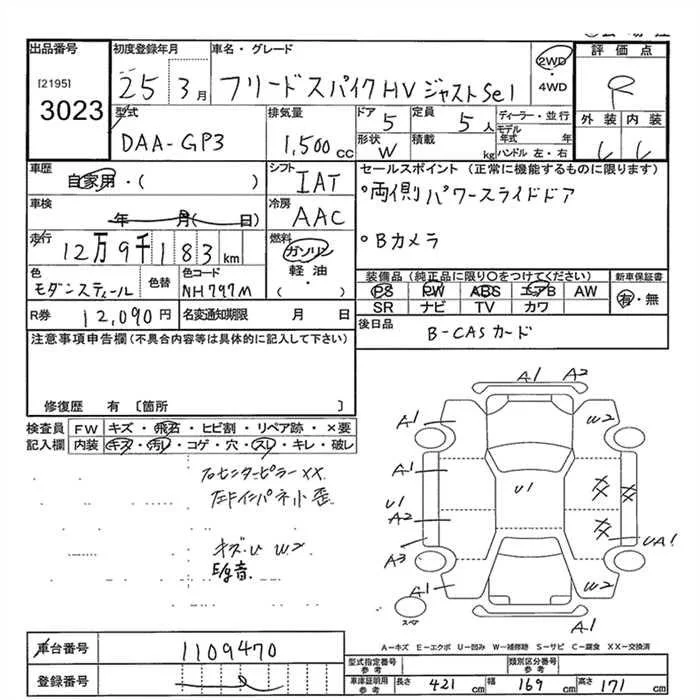 出品番号 初度登録年月 車名・グレード 2WD・4WD 評価点
[2195]
3023
25 3月 フリードスパイクHV ジャストSel R
型式 排気量 ドア 定員 ディーラー・並行 外装 内装
DAA-GP3 1,500cc 5 5人 モデル年式 年
形状 積載 ハンドル 左・右
W kg
車歴 シフト セールスポイント (正常に機能するものに限ります)
自家用・( ) IAT 両側パワースライドドア
車検 冷房
年 月( 日) AAC
走行 燃料 Bカメラ
12万9千183km ガソリン・軽油・( )
色 色替 色コード 装備品 (純正品に限り○をつけてください) 新車保証書
モダンスティール NH797M PS PW ABS エアB AW 有・無
SR ナビ TV カワ
R券 12,090円 名変通知期限 月 日 後日品
B-CASカード
注意事項申告欄(不具合内容等は具体的に記入して下さい)
修復歴 有〔箇所 〕
検査員 FW キズ・飛石・ヒビ割・リペア跡・×要
記入欄 内装 キズ・汚レ・コゲ・穴・スレ・キレ・破レ
右センターピラーXX
左インパネ小歪
キズ・U W2
E/g音
A1 A2
A1 W2
A1
U1 U1
A2
A3 UA1
A1 W2
スペア A1
A-キズ E-エクボ U-凹み W-補修跡 S-サビ C-腐食 XX-交換済
車台番号 1109470
型式指定番号 参考 類別区分番号 参考
登録番号
車庫証明用 参考 長さ 421cm 幅 169cm 高さ 171cm